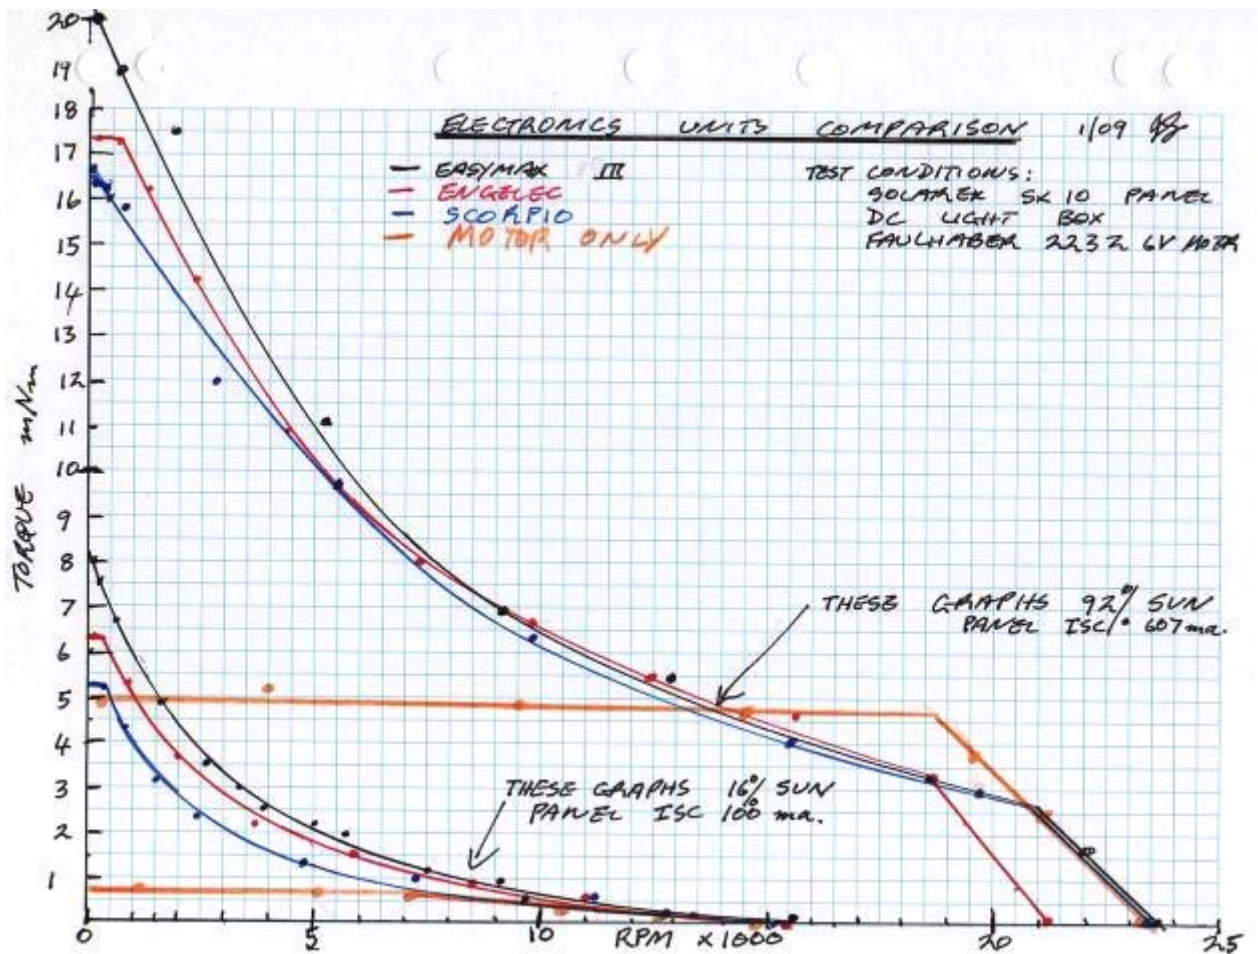 ELECTRONICS UNITS COMPARISON 1/09
EASYMAX III
ENGELEC
SCORPIO
MOTOR ONLY
TEST CONDITIONS:
SOLAREX SX 10 PANEL
DC LIGHT BOX
FAULHABER 2232 6V MOTR
THESE GRAPHS 92% SUN
PANEL ISC 607 ma.
THESE GRAPHS 16% SUN
PANEL ISC 100 ma.
TORQUE mNm
20
19
18
17
16
15
14
13
12
11
10
9
8
7
6
5
4
3
2
1
0 5 10 RPM x1000 20 25